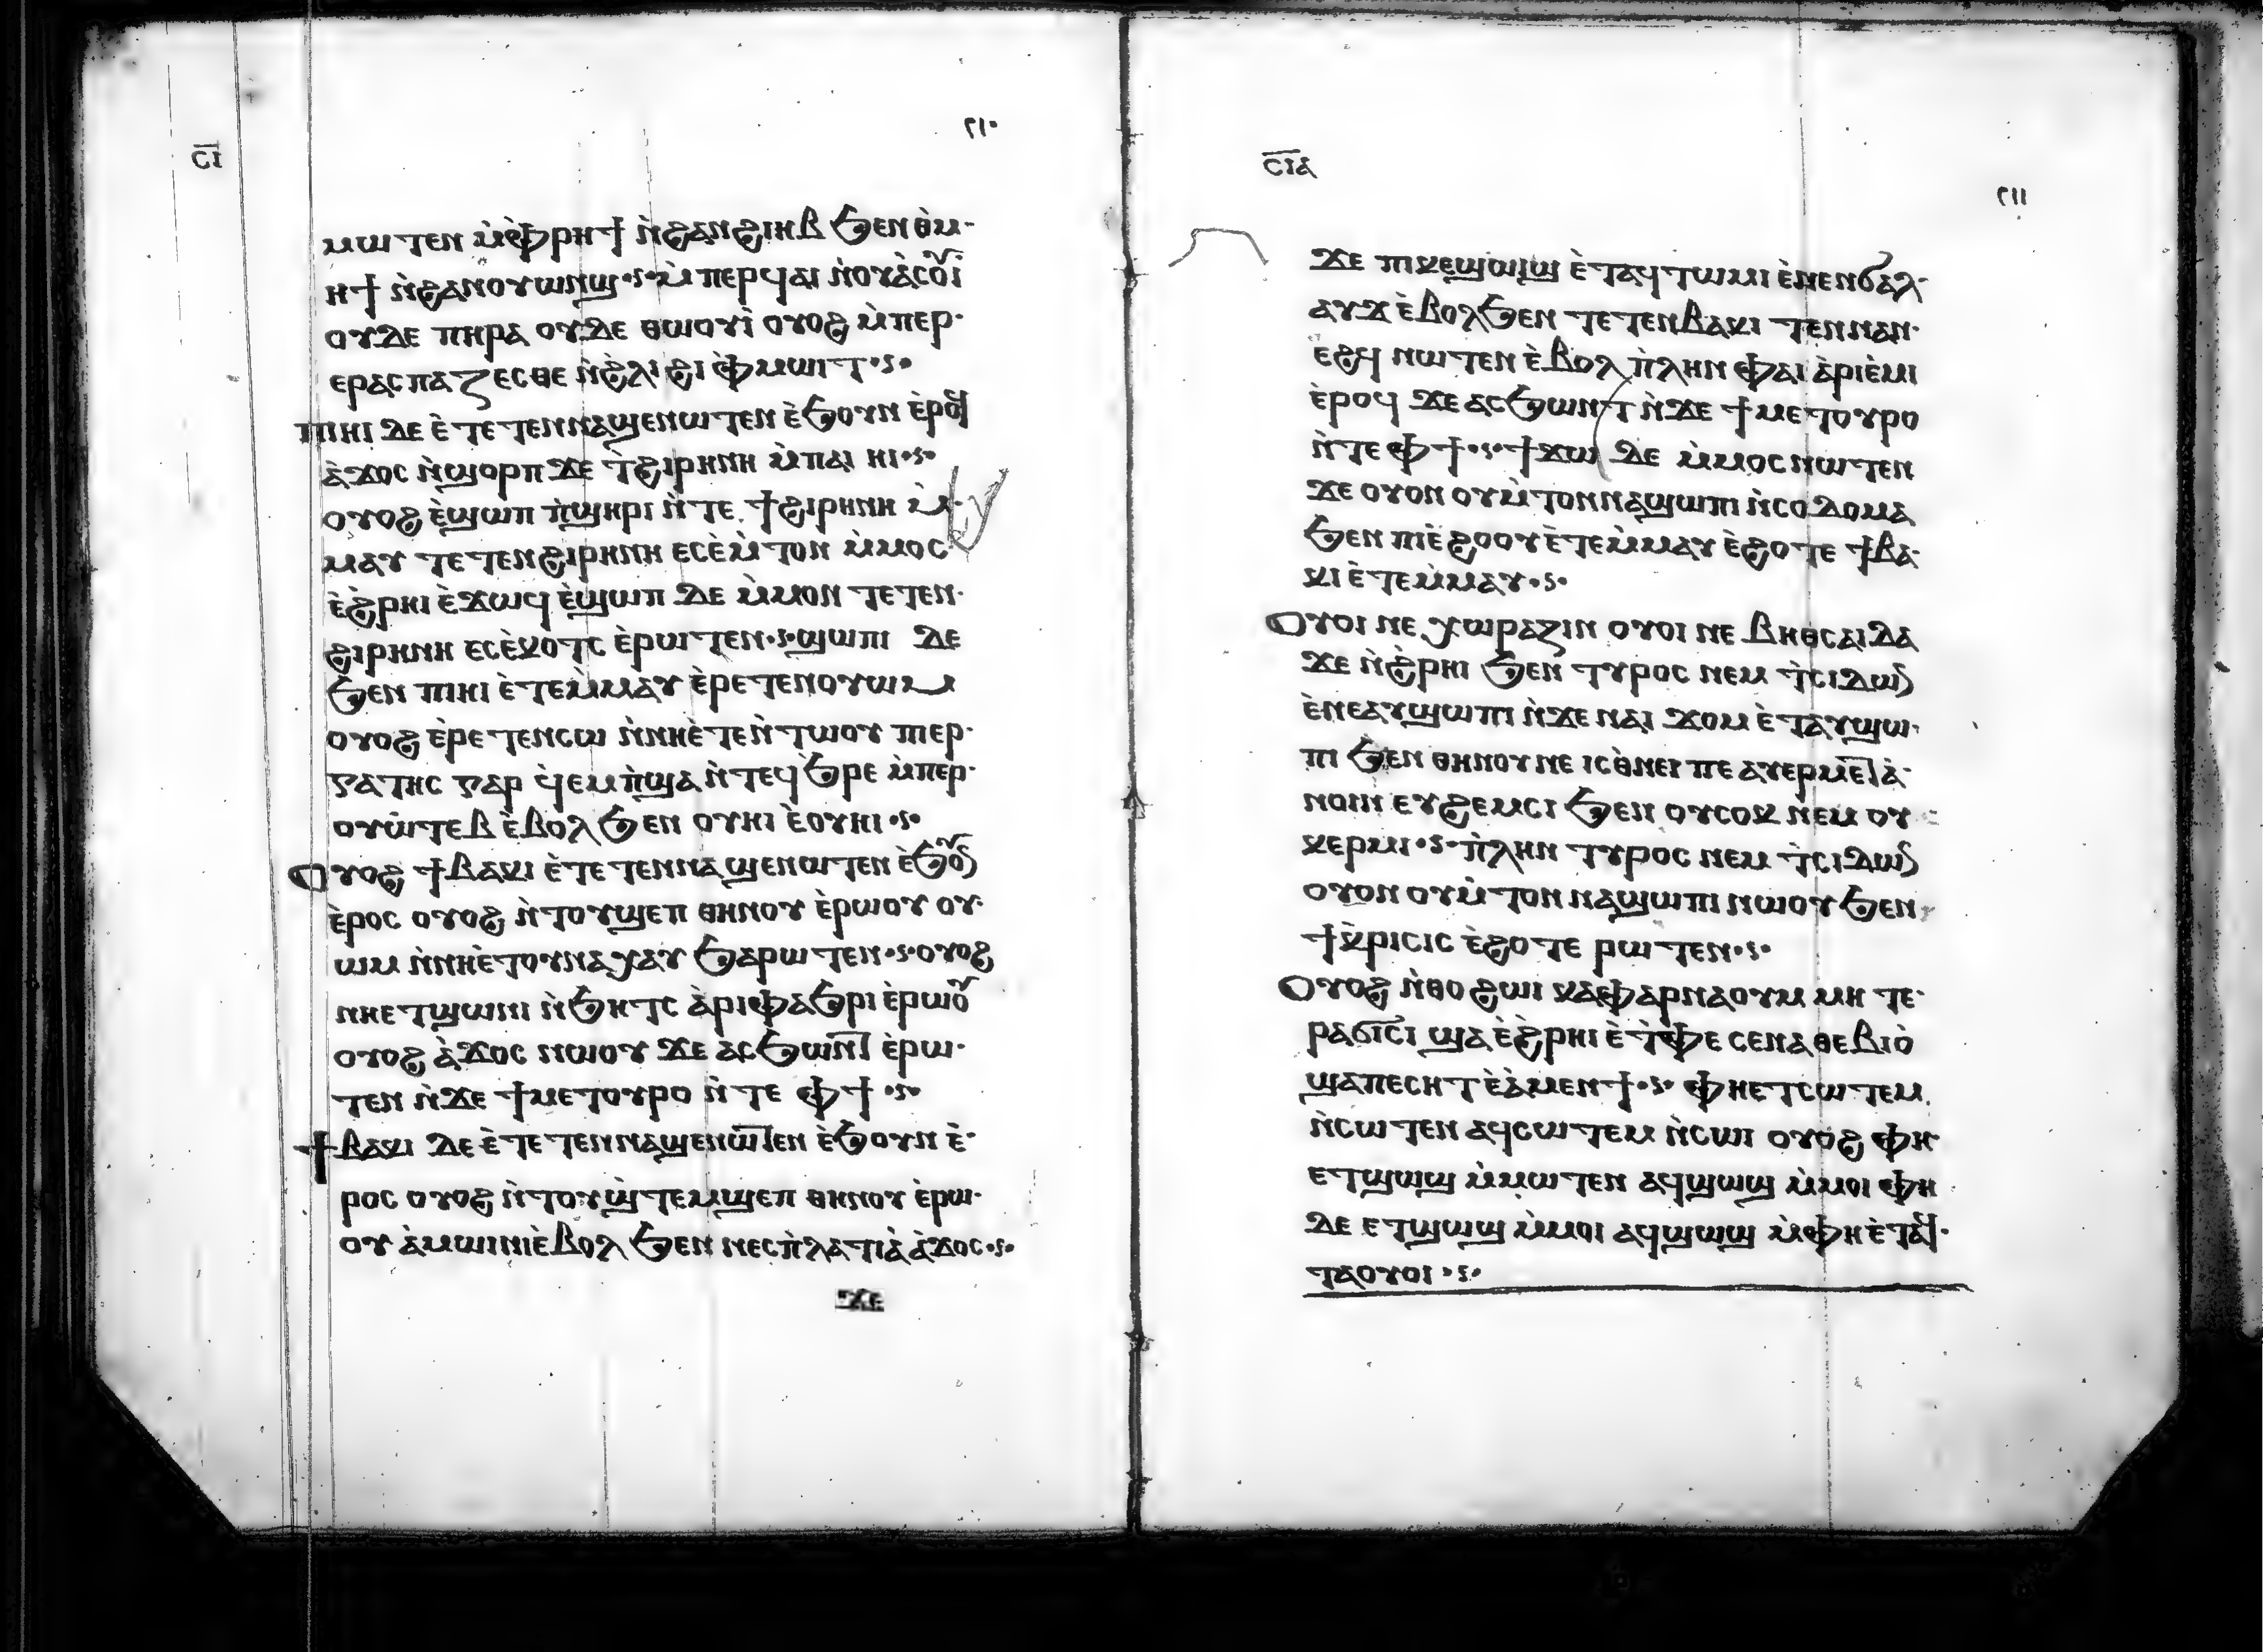 ⲥⲓ
٢١٠
ⲙⲱⲧⲉⲛ ⲙ̀ⲫⲣⲏϯ ⲛ̀ϩⲁⲛϩⲓⲏⲃ ϧⲉⲛ ⲑⲙ̀
ⲏϯ ⲛ̀ϩⲁⲛⲟⲩⲱⲛϣ ⲙ̀ⲡⲉⲣϥⲁⲓ ⲛ̀ⲟⲩⲁ̀ⲥⲟⲩⲓ
ⲟⲩⲇⲉ ⲡⲏⲣⲁ ⲟⲩⲇⲉ ⲑⲱⲟⲩⲓ̀ ⲟⲩⲟϩ ⲙ̀ⲡⲉⲣ
ⲉⲣⲁⲥⲡⲁⲍⲉⲥⲑⲉ ⲛ̀ϩ̀ⲗⲓ ϩⲓ ⲫ̀ⲙⲱⲓⲧ
ⲡⲓⲏⲓ ⲇⲉ ⲉ̀ⲧⲉⲧⲉⲛⲛⲁϣⲉⲛⲱⲧⲉⲛ ⲉ̀ϧⲟⲩⲛ ⲉ̀ⲣⲟϥ
ⲁ̀ϫⲟⲥ ⲛ̀ϣⲟⲣⲡ ϫⲉ ⲧ̀ϩⲓⲣⲏⲛⲏ ⲙ̀ⲡⲁⲓ ⲏⲓ
ⲟⲩⲟϩ ⲉ̀ϣⲱⲡ ⲡ̀ϣⲏⲣⲓ ⲛ̀ⲧⲉ ϯϩⲓⲣⲏⲛⲏ ⲙ̀
ⲙⲁⲩ ⲧⲉⲧⲉⲛϩⲓⲣⲏⲛⲏ ⲉⲥⲉ̀ⲙ̀ⲧⲟⲛ ⲙ̀ⲙⲟⲥ
ⲉ̀ϩ̀ⲣⲏⲓ ⲉ̀ϫⲱϥ ⲉ̀ϣⲱⲡ ⲇⲉ ⲙ̀ⲙⲟⲛ ⲧⲉⲧⲉⲛ
ϩⲓⲣⲏⲛⲏ ⲉⲥⲉ̀ⲕⲟⲧⲥ ⲉ̀ⲣⲱⲧⲉⲛ ϣⲱⲡⲓ ⲇⲉ
ϧⲉⲛ ⲡⲓⲏⲓ ⲉ̀ⲧⲉⲙ̀ⲙⲁⲩ ⲉ̀ⲣⲉⲧⲉⲛⲟⲩⲱⲙ
ⲟⲩⲟϩ ⲉ̀ⲣⲉⲧⲉⲛⲥⲱ ⲛ̀ⲛⲏⲉ̀ⲧⲉⲛ̀ⲧⲱⲟⲩ ⲡⲓⲉⲣ
ⲅⲁⲧⲏⲥ ⲅⲁⲣ ϥ̀ⲉⲙⲡ̀ϣⲁ ⲛ̀ⲧⲉϥϧ̀ⲣⲉ ⲙ̀ⲡⲉⲣ
ⲟⲩⲱ̀ⲧⲉⲃ ⲉ̀ⲃⲟⲗ ϧⲉⲛ ⲟⲩⲏⲓ ⲉ̀ⲟⲩⲏⲓ
ⲟⲩⲟϩ ϯⲃⲁⲕⲓ ⲉ̀ⲧⲉⲧⲉⲛⲛⲁϣⲉⲛⲱⲧⲉⲛ ⲉ̀ϧⲟⲩⲛ
ⲉ̀ⲣⲟⲥ ⲟⲩⲟϩ ⲛ̀ⲧⲟⲩϣⲉⲡ ⲑⲏⲛⲟⲩ ⲉ̀ⲣⲱⲟⲩ ⲟⲩ
ⲱⲙ ⲛ̀ⲛⲏⲉ̀ⲧⲟⲩⲛⲁⲭⲁⲩ ϧⲁⲣⲱⲧⲉⲛ ⲟⲩⲟϩ
ⲛⲏⲉⲧϣⲱⲛⲓ ⲛ̀ϧⲏⲧⲥ ⲁ̀ⲣⲓⲫⲁϧⲣⲓ ⲉ̀ⲣⲱⲟⲩ
ⲟⲩⲟϩ ⲁ̀ϫⲟⲥ ⲛⲱⲟⲩ ϫⲉ ⲁⲥϧⲱⲛⲧ ⲉ̀ⲣⲱ
ⲧⲉⲛ ⲛ̀ϫⲉ ϯⲙⲉⲧⲟⲩⲣⲟ ⲛ̀ⲧⲉ ⲫϯ
ϯⲃⲁⲕⲓ ⲇⲉ ⲉ̀ⲧⲉⲧⲉⲛⲛⲁϣⲉⲛⲱⲧⲉⲛ ⲉ̀ϧⲟⲩⲛ ⲉ̀
ⲣⲟⲥ ⲟⲩⲟϩ ⲛ̀ⲧⲟⲩϣ̀ⲧⲉⲙϣⲉⲡ ⲑⲏⲛⲟⲩ ⲉ̀ⲣⲱ
ⲟⲩ ⲁ̀ⲙⲱⲓⲛⲓ ⲉ̀ⲃⲟⲗ ϧⲉⲛ ⲛⲉⲥⲡ̀ⲗⲁⲧⲓⲁ̀ ⲁ̀ϫⲟⲥ
ϫⲉ
ⲥⲓⲁ
٢١١
ϫⲉ ⲡⲓⲕⲉϣⲱⲓϣ ⲉ̀ⲧⲁϥⲧⲱⲙⲓ ⲉ̀ⲛⲉⲛϭⲁⲗ
ⲁⲩϫ ⲉ̀ⲃⲟⲗϧⲉⲛ ⲧⲉⲧⲉⲛⲃⲁⲕⲓ ⲧⲉⲛⲛⲁⲛ
ⲉϩϥ ⲛⲱⲧⲉⲛ ⲉ̀ⲃⲟⲗ ⲡ̀ⲗⲏⲛ ⲫⲁⲓ ⲁ̀ⲣⲓⲉ̀ⲙⲓ
ⲉ̀ⲣⲟϥ ϫⲉ ⲁⲥϧⲱⲛⲧ ⲛ̀ϫⲉ ϯⲙⲉⲧⲟⲩⲣⲟ
ⲛ̀ⲧⲉ ⲫϯ ϯϫⲱ ⲇⲉ ⲙ̀ⲙⲟⲥ ⲛⲱⲧⲉⲛ
ϫⲉ ⲟⲩⲟⲛ ⲟⲩⲙ̀ⲧⲟⲛ ⲛⲁϣⲱⲡⲓ ⲛ̀ⲥⲟⲇⲟⲙⲁ
ϧⲉⲛ ⲡⲓⲉ̀ϩⲟⲟⲩ ⲉ̀ⲧⲉⲙ̀ⲙⲁⲩ ⲉ̀ϩⲟⲧⲉ ϯⲃⲁ
ⲕⲓ ⲉ̀ⲧⲉⲙ̀ⲙⲁⲩ
ⲟⲩⲟⲓ ⲛⲉ ⲭⲱⲣⲁⲍⲓⲛ ⲟⲩⲟⲓ ⲛⲉ ⲃⲏⲑⲥⲁⲓⲇⲁ
ϫⲉ ⲛ̀ϩ̀ⲣⲏⲓ ϧⲉⲛ ⲧⲩⲣⲟⲥ ⲛⲉⲙ ⲧ̀ⲥⲓⲇⲱⲛ
ⲉ̀ⲛⲉⲁⲩϣⲱⲡⲓ ⲛ̀ϫⲉ ⲛⲁⲓ ϫⲟⲙ ⲉ̀ⲧⲁⲩϣⲱ
ⲡⲓ ϧⲉⲛ ⲑⲏⲛⲟⲩ ⲛⲉ ⲓⲥϧ̀ⲛⲉⲓ ⲡⲉ ⲁⲩⲉⲣⲙⲉⲧⲁ̀
ⲛⲟⲓⲛ ⲉⲩϩⲉⲙⲥⲓ ϧⲉⲛ ⲟⲩⲥⲟⲕ ⲛⲉⲙ ⲟⲩ
ⲕⲉⲣⲙⲓ ⲡ̀ⲗⲏⲛ ⲧⲩⲣⲟⲥ ⲛⲉⲙ ⲧ̀ⲥⲓⲇⲱⲛ
ⲟⲩⲟⲛ ⲟⲩⲙ̀ⲧⲟⲛ ⲛⲁϣⲱⲡⲓ ⲛⲱⲟⲩ ϧⲉⲛ
ϯⲕ̀ⲣⲓⲥⲓⲥ ⲉ̀ϩⲟⲧⲉ ⲣⲱⲧⲉⲛ
ⲟⲩⲟϩ ⲛ̀ⲑⲟ ϩⲱⲓ ⲕⲁⲫⲁⲣⲛⲁⲟⲩⲙ ⲙⲏ ⲧⲉ
ⲣⲁϭⲓⲥⲓ ϣⲁ ⲉ̀ϩ̀ⲣⲏⲓ ⲉ̀ⲧ̀ⲫⲉ ⲥⲉⲛⲁⲑⲉⲃⲓⲟ̀
ϣⲁⲡⲉⲥⲏⲧ ⲉ̀ⲁ̀ⲙⲉⲛϯ ⲫⲏⲉⲧⲥⲱⲧⲉⲙ
ⲛ̀ⲥⲱⲧⲉⲛ ⲁϥⲥⲱⲧⲉⲙ ⲛ̀ⲥⲱⲓ ⲟⲩⲟϩ ⲫⲏ
ⲉⲧϣⲱϣ ⲙ̀ⲙⲱⲧⲉⲛ ⲁϥϣⲱϣ ⲙ̀ⲙⲟⲓ ⲫⲏ
ⲇⲉ ⲉⲧϣⲱϣ ⲙ̀ⲙⲟⲓ ⲁϥϣⲱϣ ⲙ̀ⲫⲏⲉ̀ⲧⲁϥ
ⲧⲁⲟⲩⲟⲓ